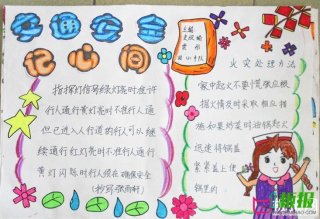 交通安全
记心间
主编
火灾处理方法
指挥灯信号绿灯亮时准许
行人通行黄灯亮时不准行人通
但已进入人行道的行人可以继
续通行红灯亮时不准行人通行
黄灯闪烁时行人须在确保安全
家中起火不要慌张应根
据火情及时采取相应措
施如果炒菜时油锅起火
迅速将锅盖
紧紧盖上使
锅里的